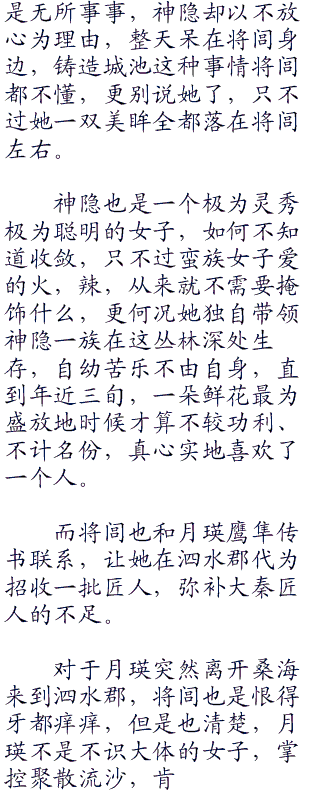 是无所事事，神隐却以不放
心为理由，整天呆在将闾身
边，铸造城池这种事情将闾
都不懂，更别说她了，只不
过她一双美眸全都落在将闾
左右。
神隐也是一个极为灵秀
极为聪明的女子，如何不知
道收敛，只不过蛮族女子爱
的火，辣，从来就不需要掩
饰什么，更何况她独自带领
神隐一族在这丛林深处生
存，自幼苦乐不由自身，直
到年近三旬，一朵鲜花最为
盛放地时候才算不较功利、
不计名份，真心实地喜欢了
一个人。
而将闾也和月瑛鹰隼传
书联系，让她在泗水郡代为
招收一批匠人，弥补大秦匠
人的不足。
对于月瑛突然离开桑海
来到泗水郡，将闾也是恨得
牙都痒痒，但是也清楚，月
瑛不是不识大体的女子，掌
控聚散流沙，肯